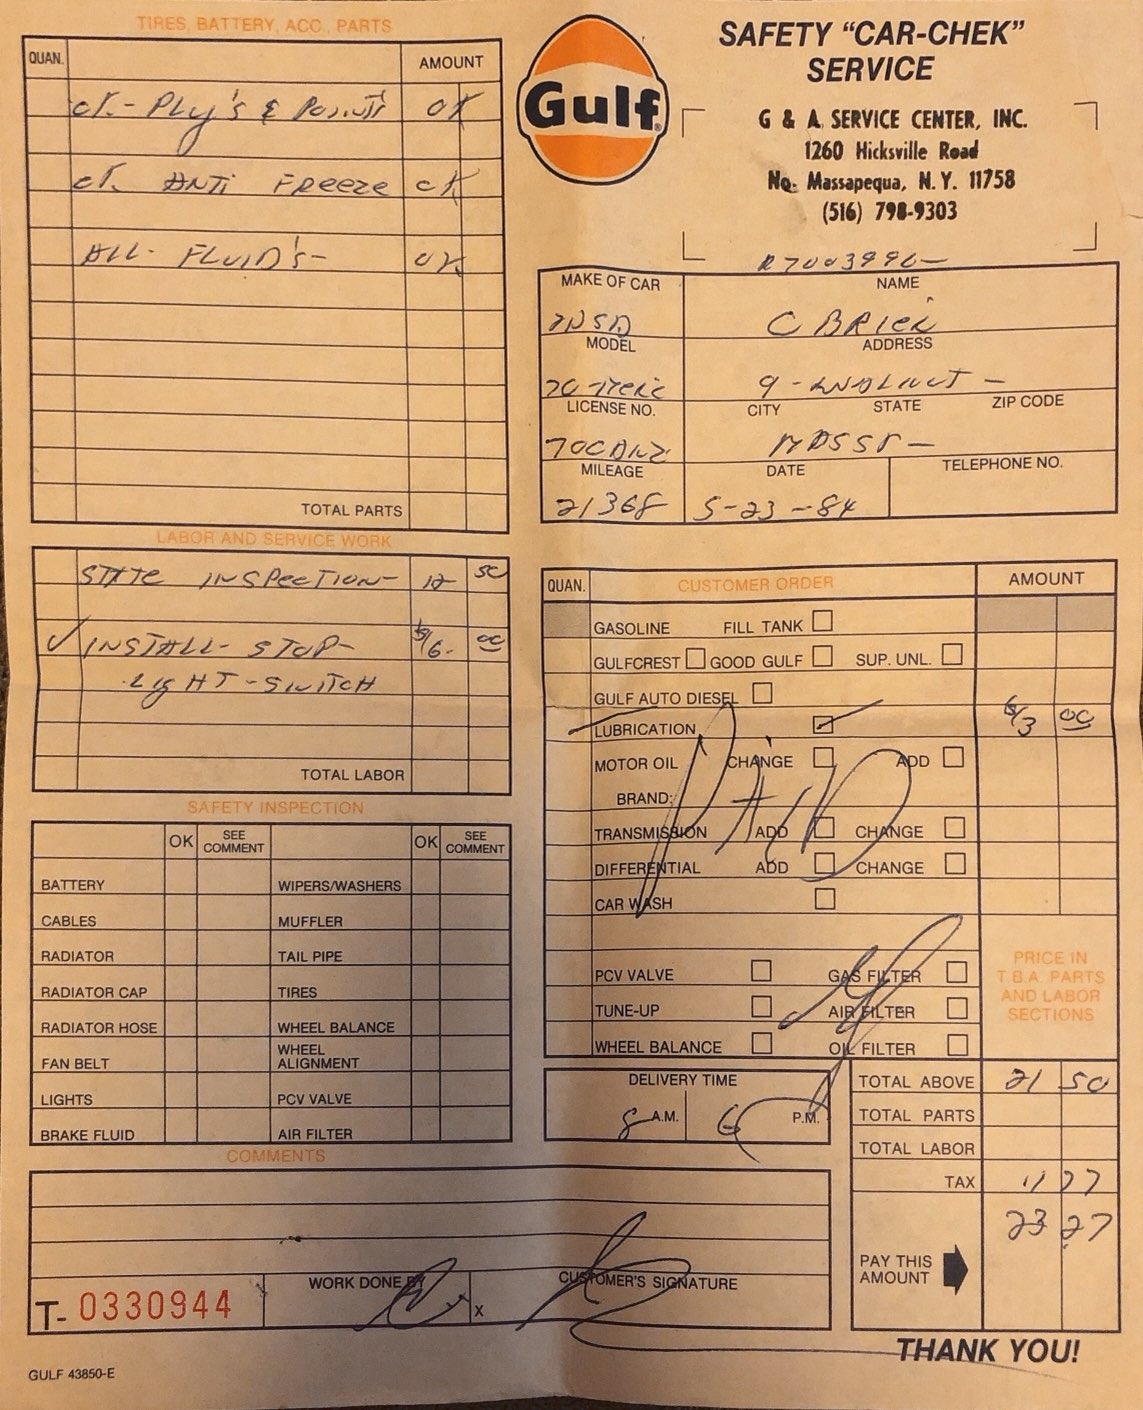 TIRES, BATTERY, ACC., PARTS
QUAN. AMOUNT
cK- PLUg's & POINTS OK
cK. ANTI FREEZE OK
ALL- FLUID's- OK
TOTAL PARTS
Gulf®
SAFETY “CAR-CHEK”
SERVICE
G & A SERVICE CENTER, INC.
1260 Hicksville Road
No. Massapequa, N.Y. 11758
(516) 798-9303
MAKE OF CAR NAME
MODEL ADDRESS
9 - WALNUT -
LICENSE NO. CITY STATE ZIP CODE
MILEAGE DATE TELEPHONE NO.
21368 5-23-84
LABOR AND SERVICE WORK
STATE INSPECTION- 12 50
✓ INSTALL- STOP- $6.- 00
LIgHT-SWITCH
TOTAL LABOR
QUAN. CUSTOMER ORDER AMOUNT
GASOLINE FILL TANK
GULFCREST GOOD GULF SUP. UNL.
GULF AUTO DIESEL
LUBRICATION $3 00
MOTOR OIL CHANGE ADD
BRAND:
PAID
TRANSMISSION ADD CHANGE
DIFFERENTIAL ADD CHANGE
CAR WASH
PCV VALVE GAS FILTER
TUNE-UP AIR FILTER
WHEEL BALANCE OIL FILTER
PRICE IN
T.B.A. PARTS
AND LABOR
SECTIONS
SAFETY INSPECTION
OK SEE COMMENT OK SEE COMMENT
BATTERY WIPERS/WASHERS
CABLES MUFFLER
RADIATOR TAIL PIPE
RADIATOR CAP TIRES
RADIATOR HOSE WHEEL BALANCE
FAN BELT WHEEL ALIGNMENT
LIGHTS PCV VALVE
BRAKE FLUID AIR FILTER
DELIVERY TIME
8 A.M. 6 P.M.
TOTAL ABOVE 21 50
TOTAL PARTS
TOTAL LABOR
TAX 1 77
PAY THIS
AMOUNT
23 27
COMMENTS
T- 0330944
WORK DONE BY
X CUSTOMER'S SIGNATURE
THANK YOU!
GULF 43850-E